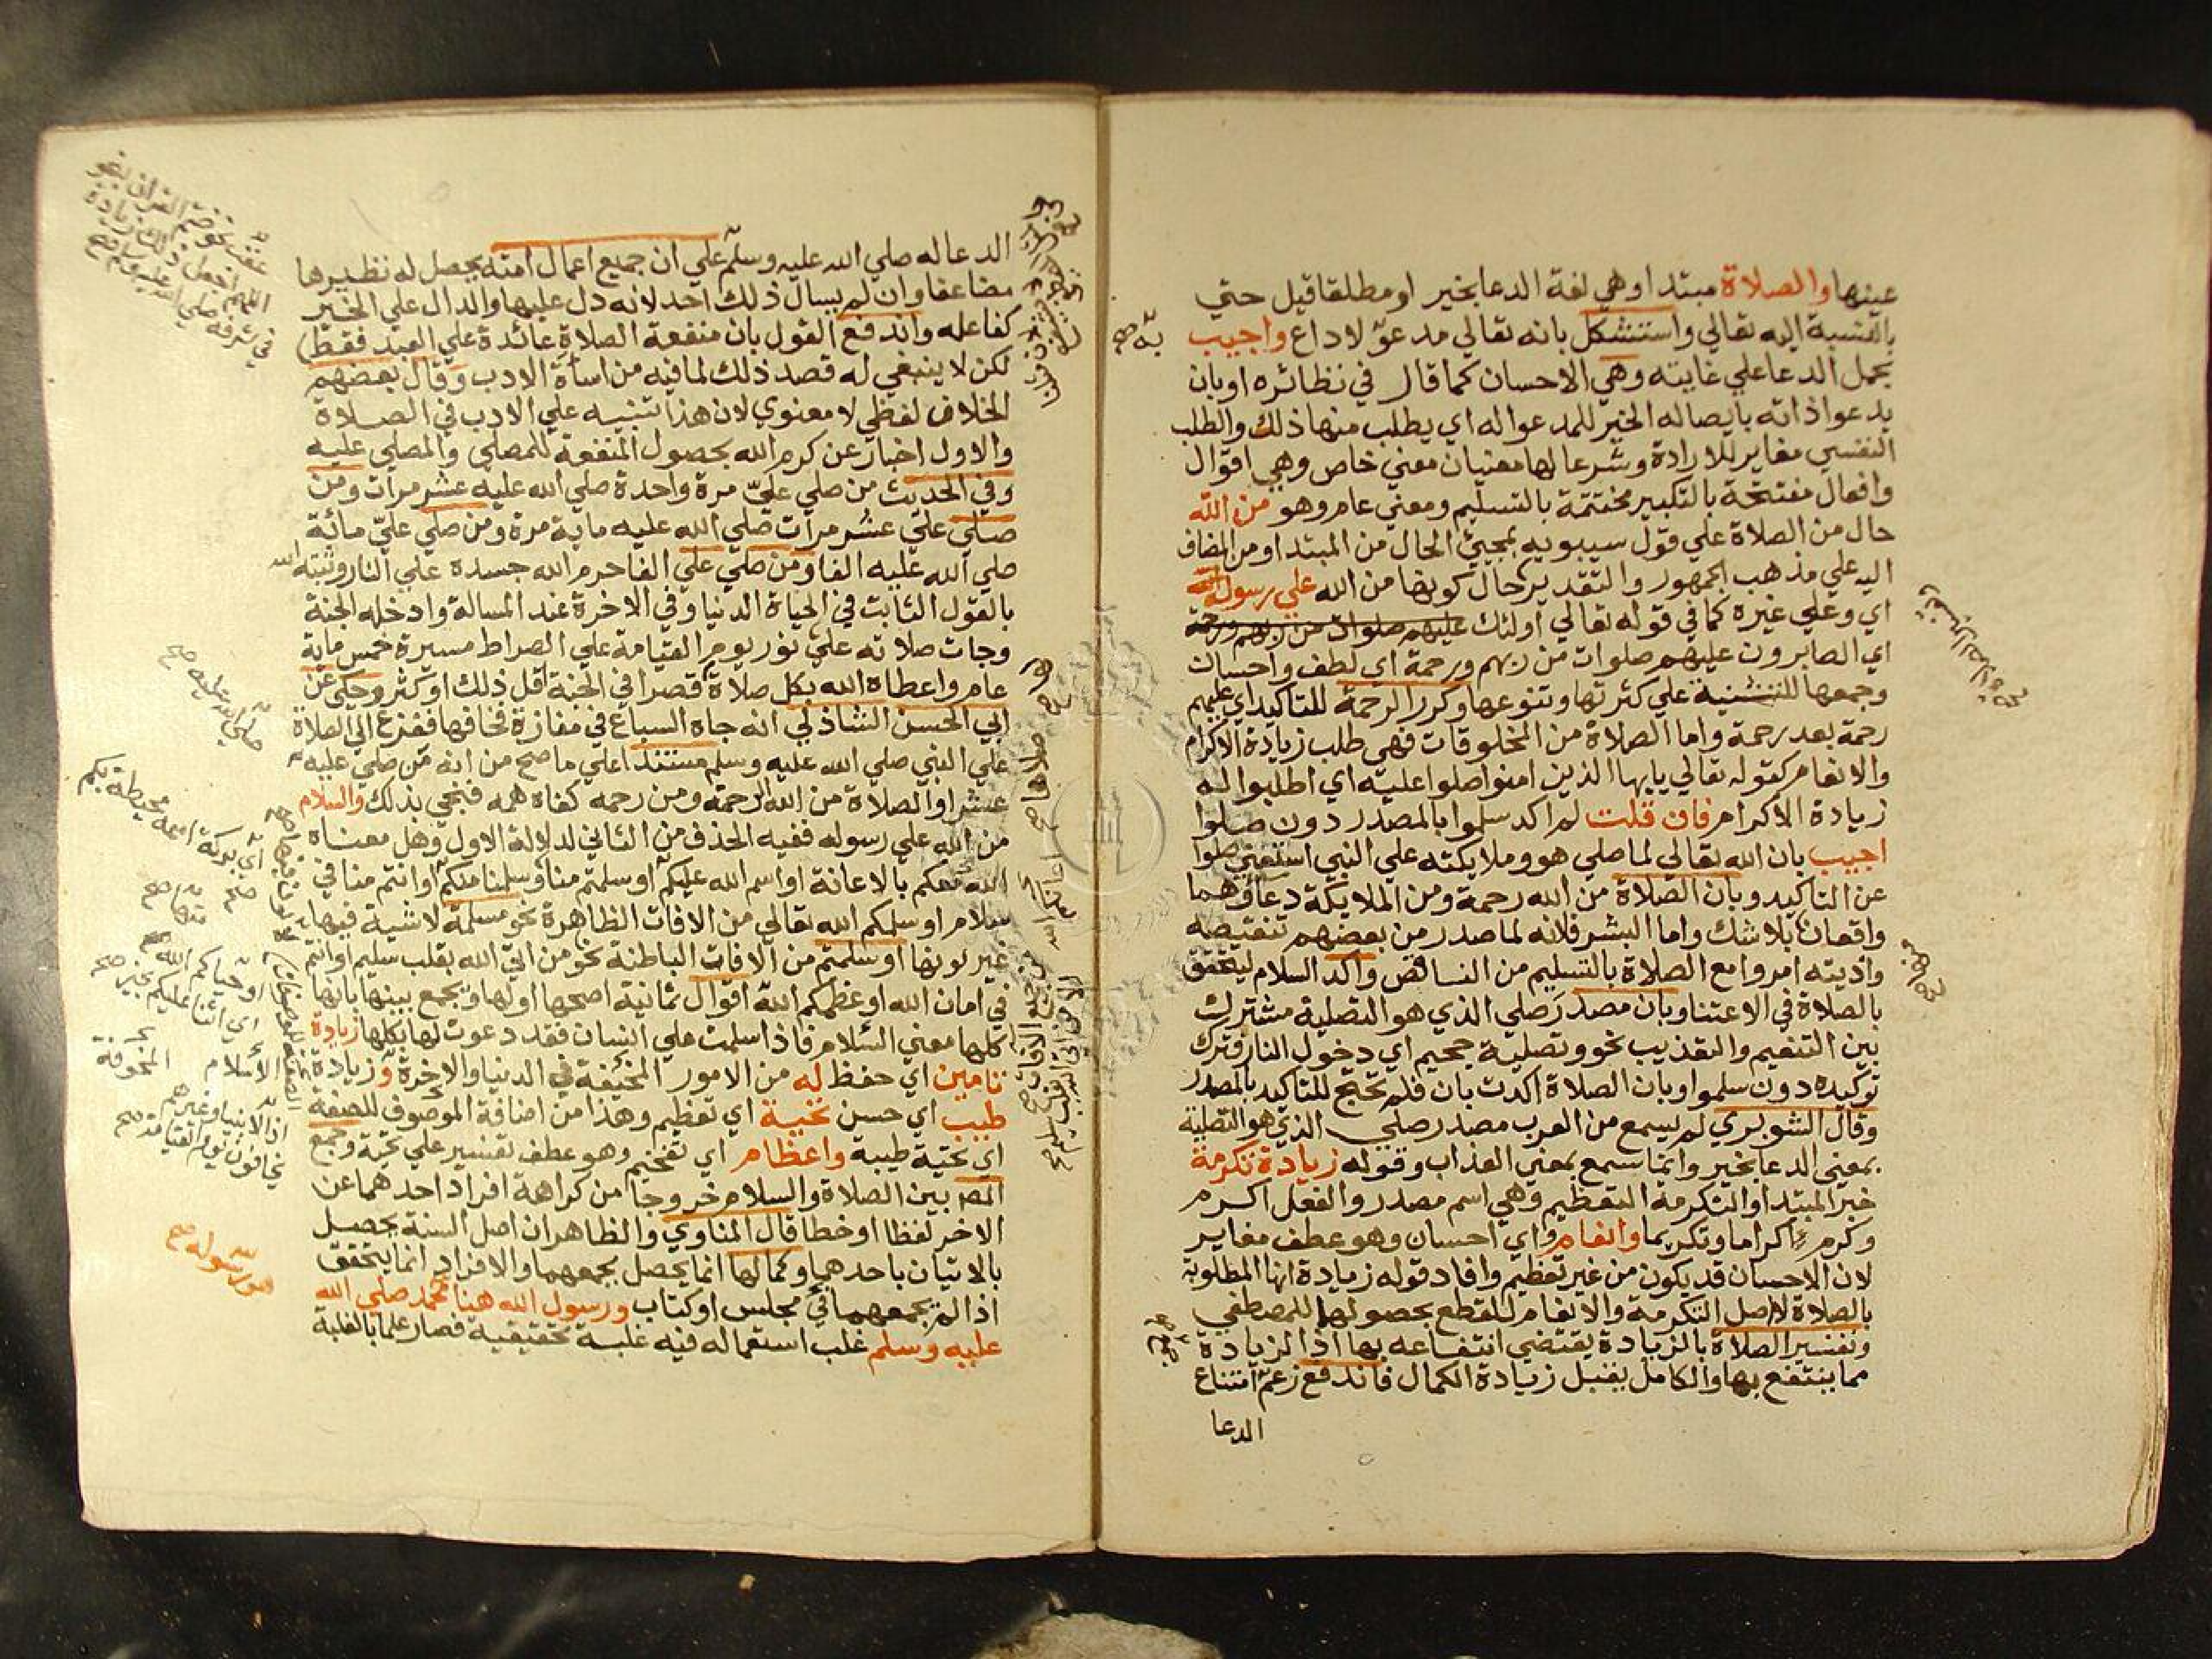 عينها والصلاة مبتدا وهي لغة الدعا بخير او مطلقا قيل حتي
بالنسبة اليه تعالي واستشكل بانه تعالي مدعوّ لا داع واجيب
بحمل الدعا علي غايته وهي الاحسان كما قال في نظائره او بان
يدعوا ذاته بايصاله الخير للمدعوا له اي يطلب منها ذلك والطلب
النفسي مغاير للارادة وشرعا لها معنيان معني خاص وهي اقوال
وافعال مفتتحة بالتكبير مختتمة بالتسليم ومعني عام وهو من الله
حال من الصلاة علي قول سيبويه بمجيئ الحال من المبتدا ومن المضاف
اليه علي مذهب الجمهور والتقدير حال كونها من الله علي رسول الله
اي وعلي غيره كما في قوله تعالي اولئك عليهم صلوات من ربهم ورحمة
اي الصابرون عليهم صلوات من ربهم ورحمة اي لطف واحسان
وجمعها للتثنية علي كثرتها وتنوعها وكرر الرحمة للتاكيد اي عليهم
رحمة بعد رحمة واما الصلاة من المخلوقات فهي طلب زيادة الاكرام
والانعام كقوله تعالي يايها الذين امنوا صلوا عليه اي اطلبوا له
زيادة الاكرام فان قلت لم اكد سلموا بالمصدر دون صلوا
اجيب بان الله تعالي لما صلي هو وملايكته علي النبي استغني صلوا
عن التاكيد وبان الصلاة من الله رحمة ومن الملايكة دعا وهما
واقعان بلا شك واما البشر فلانه لما صدر من بعضهم تنقيصه
واذيته امروا مع الصلاة بالتسليم من النقائص واكد السلام ليتحقق
بالصلاة في الاعتنا وبان مصدر صلي الذي هو التصلية مشترك
بين التنعيم والتعذيب نحو وتصلية جحيم اي دخول النار فترك
توكيده دون سلموا وبان الصلاة اكدت بان فلم تحتج للتاكيد بالمصدر
وقال الشوبري لم يسمع من العرب مصدر صلي الذي هو التصلية
بمعني الدعا بخير وانما سمع بمعني العذاب وقوله زيادة تكرمة
خبر المبتدا والتكرمة التعظيم وهي اسم مصدر والفعل اكرم
وكرم اكراما وتكريما وانعام اي احسان وهو عطف مغاير
لان الاحسان قد يكون من غير تعظيم وافاد قوله زيادة انها المطلوبة
بالصلاة لا اصل التكرمة والانعام للقطع بحصولها للمصطفي
وتفسير الصلاة بالزيادة يقتضي انتفاعه بها اذ الزيادة
مما ينتفع بها والكامل يقبل زيادة الكمال فاندفع زعم امتناع
الدعا
به صح
الدعا له صلي الله عليه وسلم علي ان جميع اعمال امته يحصل له نظيرها
مضاعفا وان لم يسال ذلك احد لانه دل عليها والدال علي الخير
كفاعله واندفع القول بان منفعة الصلاة عائدة علي العبد فقط
لكن لا ينبغي له قصد ذلك لما فيه من اساة الادب وقال بعضهم
الخلاف لفظي لا معنوي لان هذا تنبيه علي الادب في الصلاة
والاول اخبار عن كرم الله بحصول المنفعة للمصلي والمصلي عليه
وفي الحديث من صلي عليّ مرة واحدة صلي الله عليه عشر مرات ومن
صلي علي عشر مرات صلي الله عليه ماية مرة ومن صلي عليّ مائة
صلي الله عليه الفا ومن صلي علي الفا حرم الله جسده علي النار وثبته الله
بالقول الثابت في الحياة الدنيا وفي الاخرة عند المسالة وادخله الجنة
وجات صلاته علي نور يوم القيامة علي الصراط مسيرة خمس ماية
عام واعطاه الله بكل صلاة قصرا في الجنة اقل ذلك او كثر وحكي عن
ابي الحسن الشاذلي انه جاه السباع في مفازة فخافها ففزع الي الصلاة
علي النبي صلي الله عليه وسلم مستندا علي ما صح من انه من صلي عليه
عشرا والصلاة من الله الرحمة ومن رحمه كفاه همه فنجي بذلك والسلام
من الله علي رسوله ففيه الحذف من الثاني لدلالة الاول وهل معناه
الله معكم بالاعانة او اسم الله عليكم او سلمتم منا وسلمنا منكم او انتم منا في
سلام او سلمكم الله تعالي من الافات الظاهرة نحو مسلمة لا شية فيها
غير لونها او سلمتم من الافات الباطنة نحو من اتي الله بقلب سليم او انتم
في امان الله او عظمكم الله اقوال ثمانية اصحها اولها ويجمع بينها بانها
كلها معني السلام فاذا سلمت علي انسان فقد دعوت لها بكلها زيادة
تامين اي حفظ له من الامور المخيفة في الدنيا والاخرة وزيادة
طيب اي حسن تحية اي تعظيم وهذا من اضافة الموصوف للصفة
اي تحية طيبة واعظام اي تفخيم وهو عطف تفسير علي تحية وجمع
المص بين الصلاة والسلام خروجا من كراهة افراد احدهما عن
الاخر لفظا او خطا قال المناوي والظاهر ان اصل السنة يحصل
بالاتيان باحدهما وكمالها انما يحصل بجمعهما والافراد انما يتحقق
اذا لم يجمعهما في مجلس او كتاب ورسول الله هنا محمد صلي الله
عليه وسلم غلب استعماله فيه غلبة تحقيقية فصار علما بالغلبة
عقب نحو ختم القران بنحو
اللهم اجعل ذلك زيادة
في شرفه صلي الله عليه وسلم صح
صلي الله عليه صح
اي بركة اسمه محيطة بكم
صح
منها صح
او حياكم الله صح
اي اثنا عليكم بخير صح
الاسلام
المخوفة
اذ الانبيا وغيرهم
يخافون يوم القيامة صح
رسوله صح